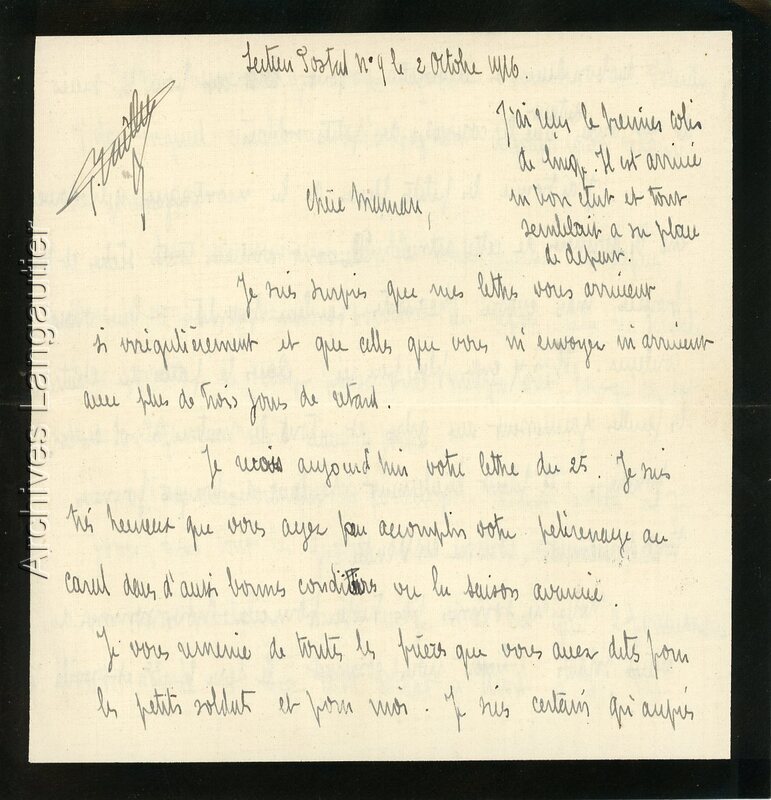 Secteur Postal N° 9 le 2 Octobre 1916
J'ai reçu le premier colis
de linge. Il est arrivé
en bon etat et tout
semblait a sa place
de depart.
Chère Maman,
Je suis surpris que mes lettres vous arrivent
si irrégulièrement et que celles que vous m'envoyez m'arrivent
avec plus de trois jours de retard.
Je reçois aujourd'hui votre lettre du 25. Je suis
très heureux que vous ayez pu accomplir votre pelerinage au
dans d'aussi bonnes conditions vu la saison avancée.
Je vous remercie de toutes les prières que vous avez dites pour
les petits soldats et pour moi. Je suis certain qu'auprès
Archives Langautier